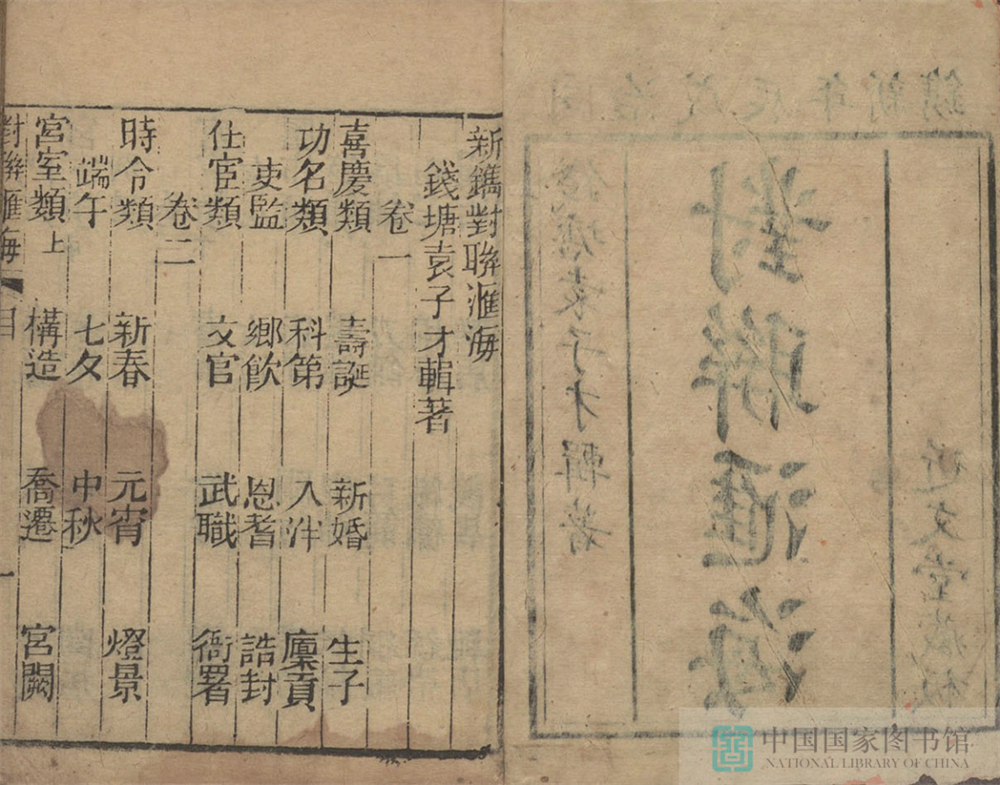 同治戊辰年新鐫
錢塘袁子才輯著
對聮滙海
近文堂藏板
新鐫對聮滙海
錢塘袁子才輯著
卷一
喜慶類 壽誕 新婚 生子
功名類 科第 入泮 廩貢
吏監 鄉飲 恩耆 誥封
仕宦類 文官 武職 衙署
卷二
時令類 新春 元宵 燈景
端午 七夕 中秋
宮室類上 構造 喬遷 宮闕
對聮滙海 目 一
中国国家图书馆
NATIONAL LIBRARY OF CHINA